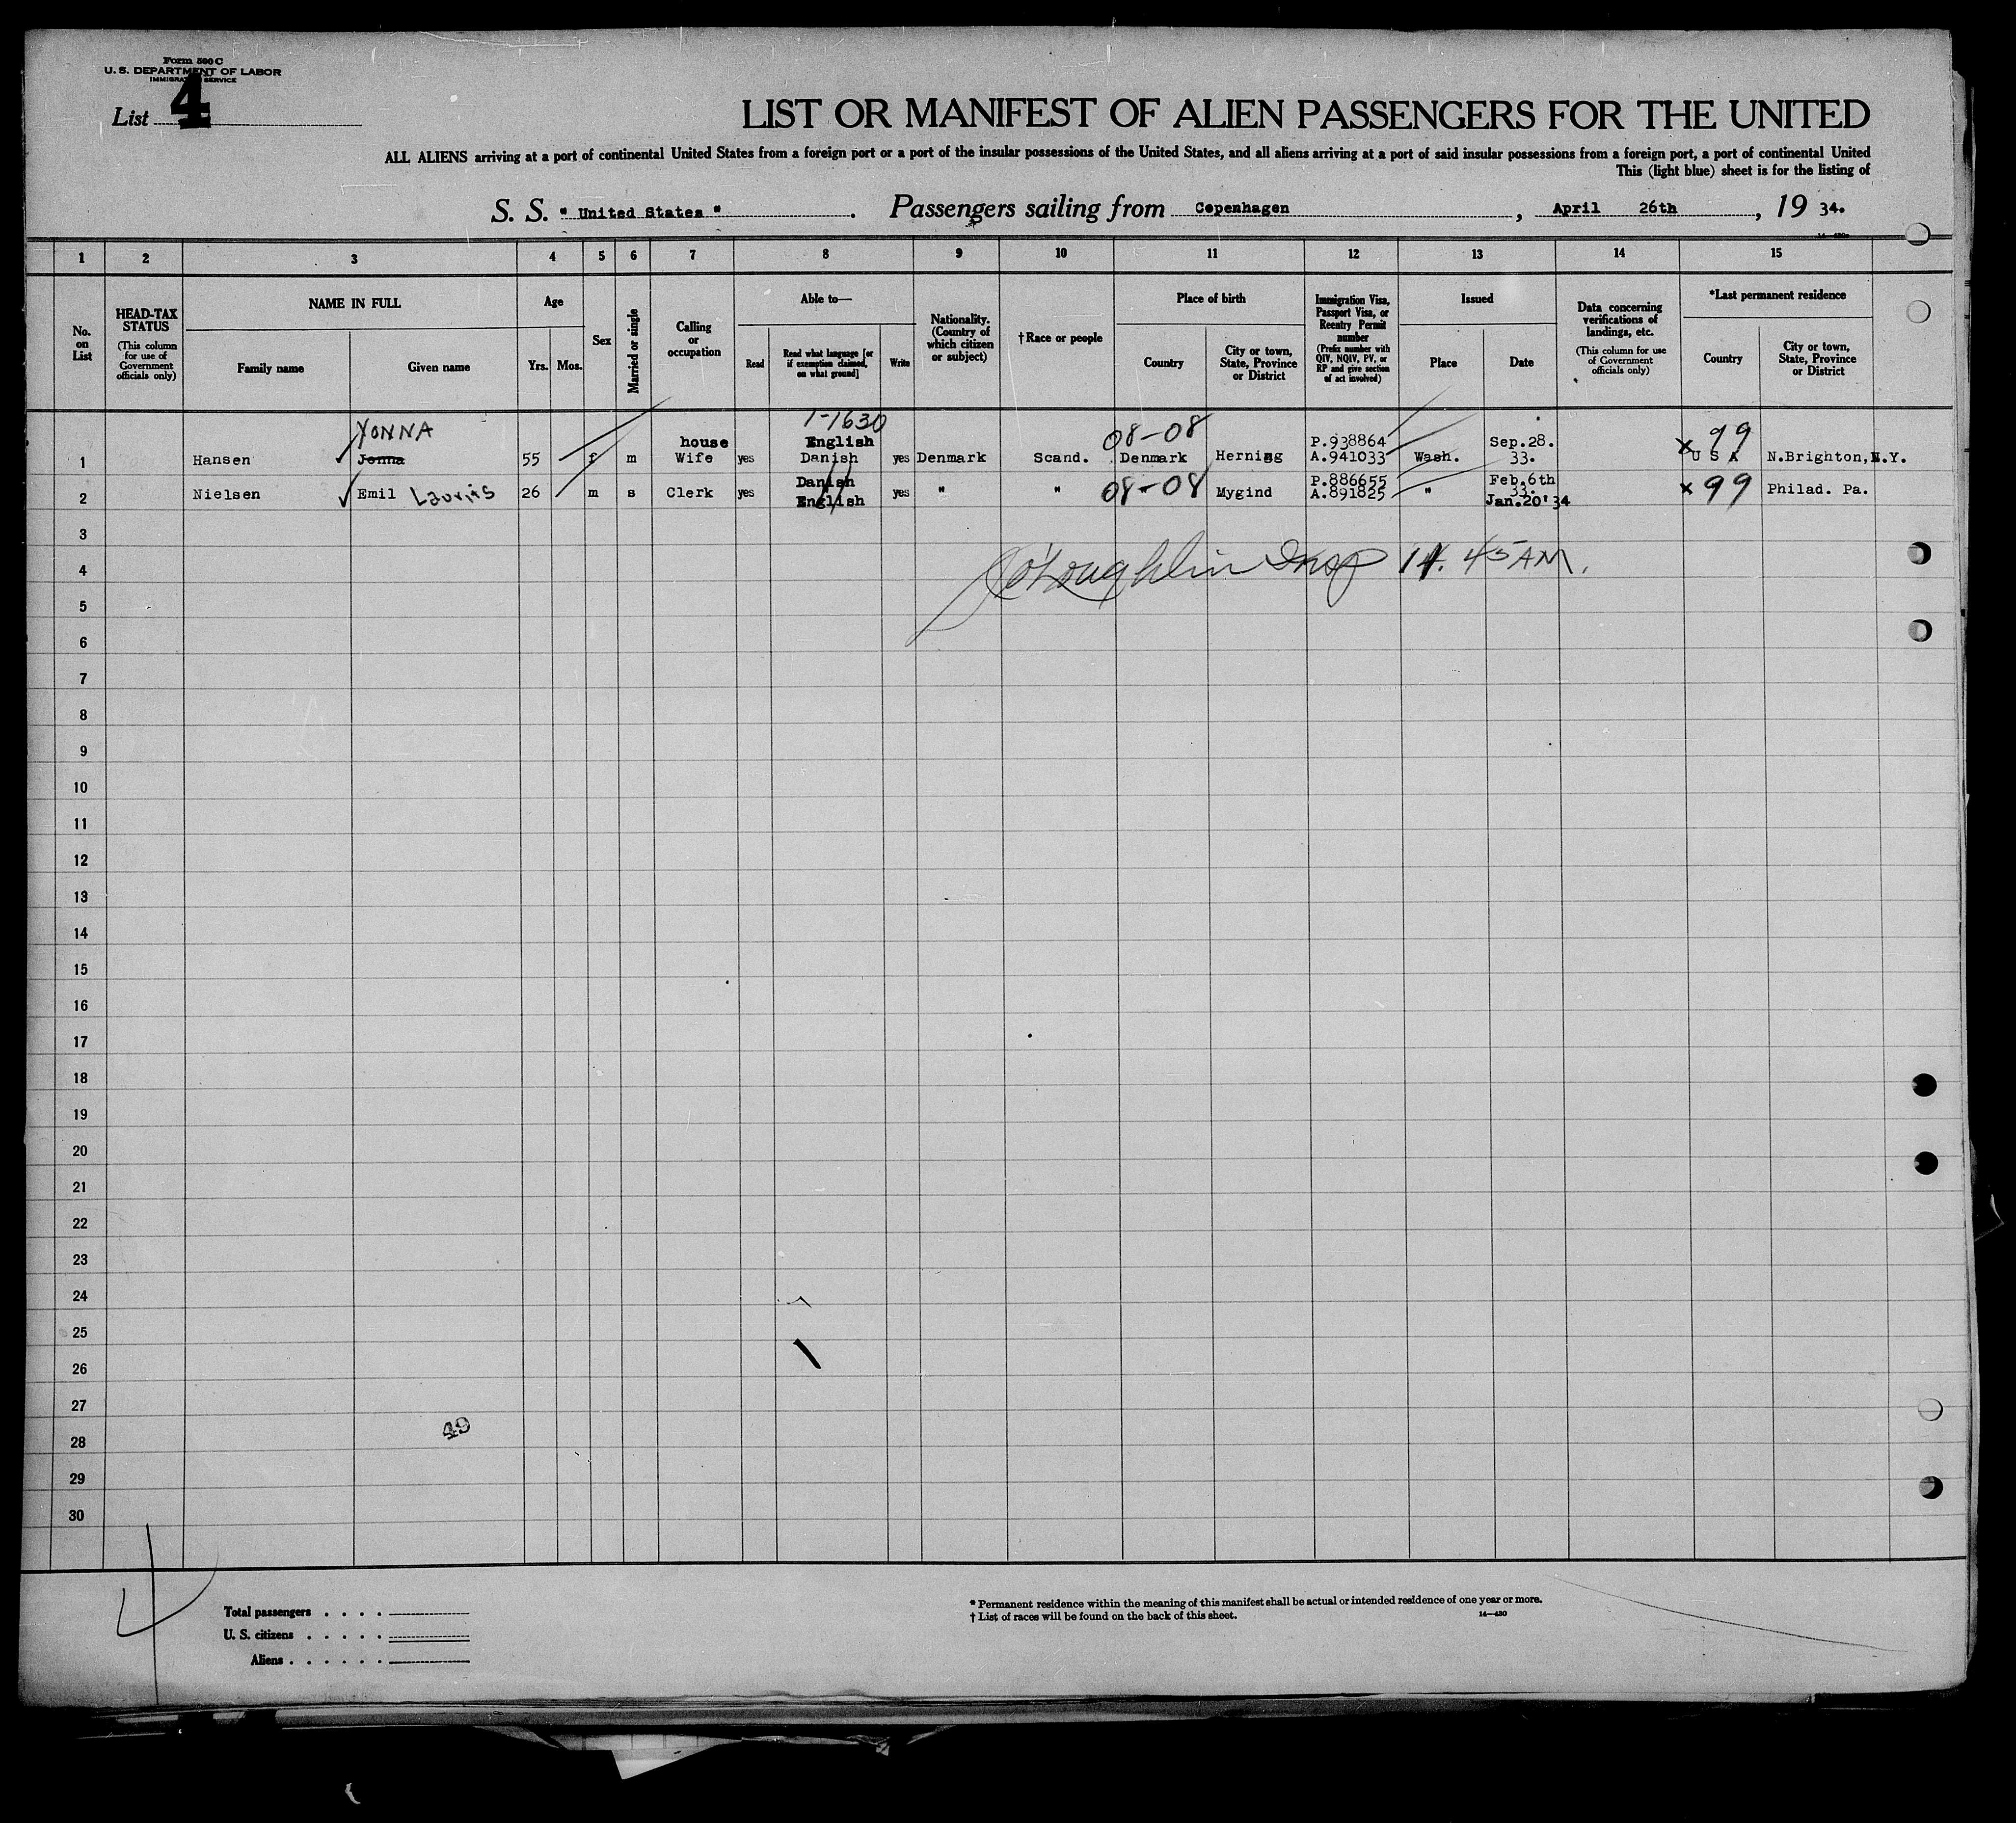 Form 500 C
U. S. DEPARTMENT OF LABOR
IMMIGRATION SERVICE
List 4
LIST OR MANIFEST OF ALIEN PASSENGERS FOR THE UNITED
ALL ALIENS arriving at a port of continental United States from a foreign port or a port of the insular possessions of the United States, and all aliens arriving at a port of said insular possessions from a foreign port, a port of continental United
This (light blue) sheet is for the listing of
S. S. " United States ". Passengers sailing from Copenhagen, April 26th, 19 34.
14—430
1 2 3 4 5 6 7 8 9 10 11 12 13 14 15
No. on List
HEAD-TAX STATUS (This column for use of Government officials only)
NAME IN FULL
Family name
Given name
Age
Yrs. Mos.
Sex
Married or single
Calling or occupation
Able to—
Read
Read what language [or if exemption claimed, on what ground]
Write
Nationality. (Country of which citizen or subject)
†Race or people
Place of birth
Country
City or town, State, Province or District
Immigration Visa, Passport Visa, or Reentry Permit number (Prefix number with QIV, NQIV, PV, or RP and give section of act involved)
Issued
Place
Date
Data concerning verifications of landings, etc. (This column for use of Government officials only)
*Last permanent residence
Country
City or town, State, Province or District
YONNA 1-1630
house English 08-08 P.938864 Sep.28. 99
1 Hansen Jonna 55 f m Wife yes Danish yes Denmark Scand. Denmark Herning A.941033 Wash. 33. x U S A N.Brighton,N.Y.
Danish P.886655 Feb.6th
2 Nielsen Emil Laurits 26 m s Clerk yes English yes " " 08-08 Mygind A.891825 " 33. x 99 Philad. Pa.
Jan.20'34
3
O'Loughlin Insp 11.45 AM.
4
5
6
7
8
9
10
11
12
13
14
15
16
17
18
19
20
21
22
23
24
25
26
27
49
28
29
30
4
Total passengers . . . .
U. S. citizens . . . . .
Aliens . . . . . .
* Permanent residence within the meaning of this manifest shall be actual or intended residence of one year or more.
† List of races will be found on the back of this sheet.
14—430